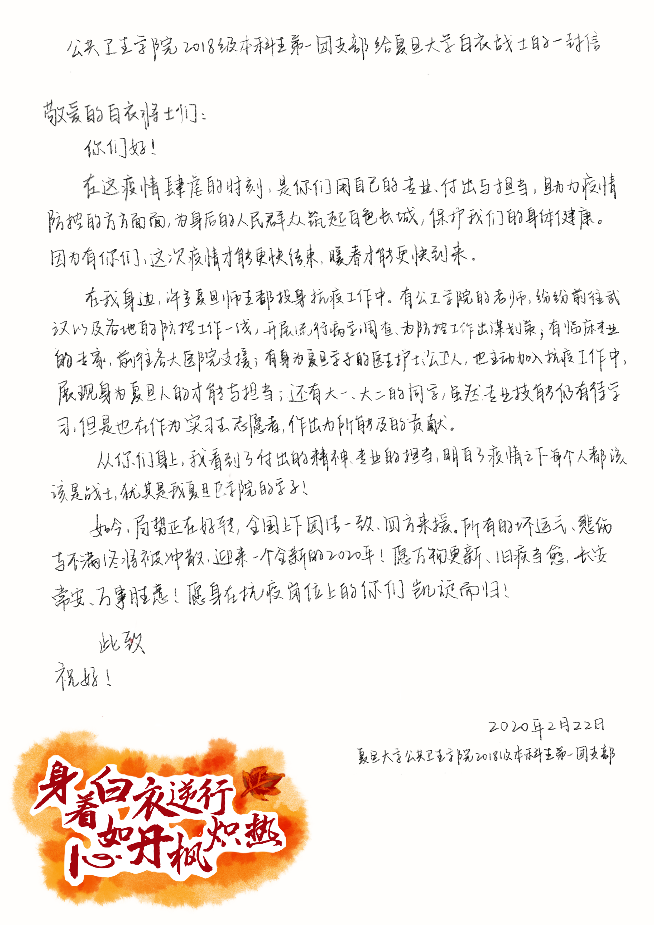 公共卫生学院2018级本科生第一团支部给复旦大学白衣战士的一封信
敬爱的白衣将士们：
你们好！
在这疫情肆虐的时刻，是你们用自己的专业、付出与担当，助力疫情
防控的方方面面，为身后的人民群众筑起白色长城，保护我们的身体健康。
因为有你们，这次疫情才能更快结束，暖春才能更快到来。
在我身边，许多复旦师生都投身抗疫工作中。有公卫学院的老师，纷纷前往武
汉以及各地的防控工作一线，开展流行病学调查、为防控工作出谋划策；有临床专业
的专家，前往各大医院支援；有身为复旦学子的医生护士、公卫人，也主动加入抗疫工作中，
展现身为复旦人的才能与担当；还有大一、大二的同学，虽然专业技能仍有待学
习，但是也在作为实习生、志愿者，作出力所能及的贡献。
从你们身上，我看到了付出的精神、专业的担当，明白了疫情之下每个人都应
该是战士，尤其是我复旦卫学院的学子！
如今，局势正在好转，全国上下团结一致、四方来援。所有的坏运气、悲伤
与不满终将被冲散，迎来一个全新的2020年！愿万物更新、旧疾当愈，长安
常安、万事胜意！愿身在抗疫岗位上的你们凯旋而归！
此致
祝好！
2020年2月22日
复旦大学公共卫生学院2018级本科生第一团支部
身着白衣逆行
心如丹枫炽热